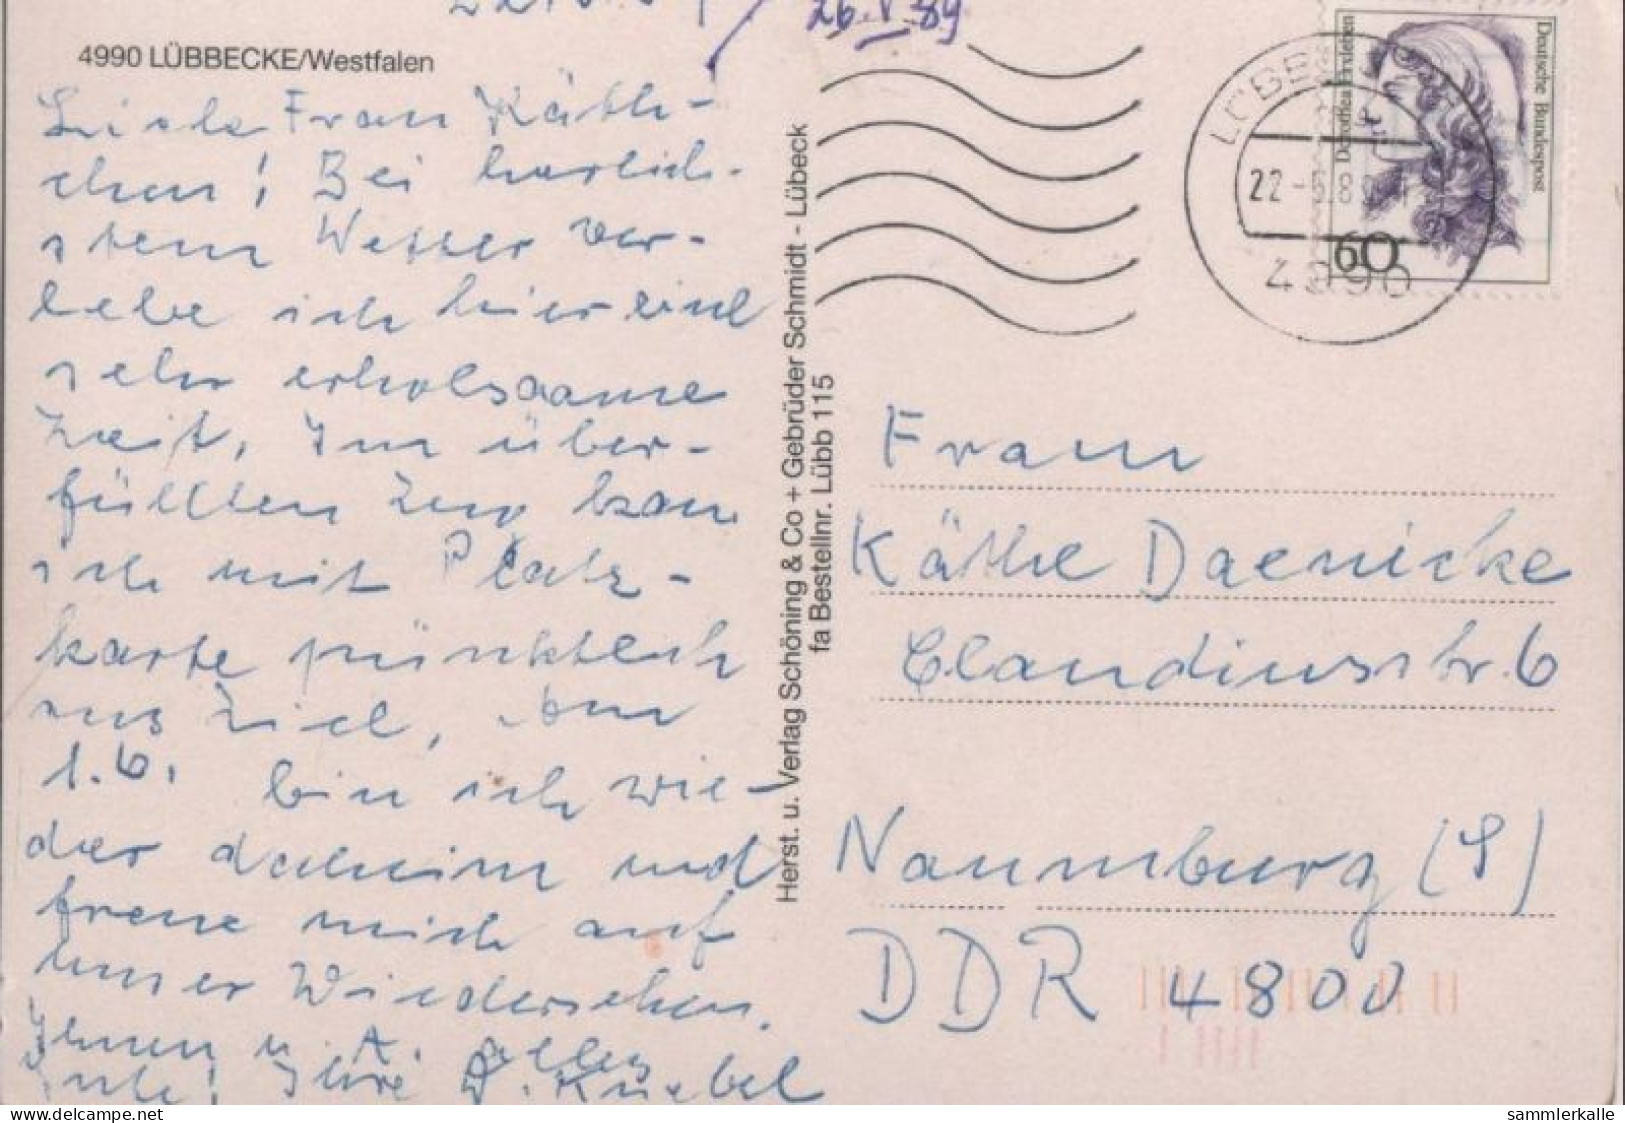 26.V.89
4990 LÜBBECKE/Westfalen
Liebe Frau Käth-
chen! Bei herrlich-
stem Wetter ver-
lebe ich hier eine
sehr erholsame
Zeit. Im über-
füllten Zug kam
ich mit Platz-
karte pünktlich
ans Ziel. Am
1.6. bin ich wie-
der daheim und
freue mich auf
unser Wiedersehen.
Ihnen u. A. alles
Gute! Ihre D. Knebel
Herst. u. Verlag Schöning & Co + Gebrüder Schmidt - Lübeck
fa Bestellnr. Lübb 115
22
4990
Dorothea Erxleben
Deutsche Bundespost
60
Frau
Käthe Daenicke
Claudiusstr. 6
Naumburg (S)
DDR 4800
© www.delcampe.net
sammlerkalle